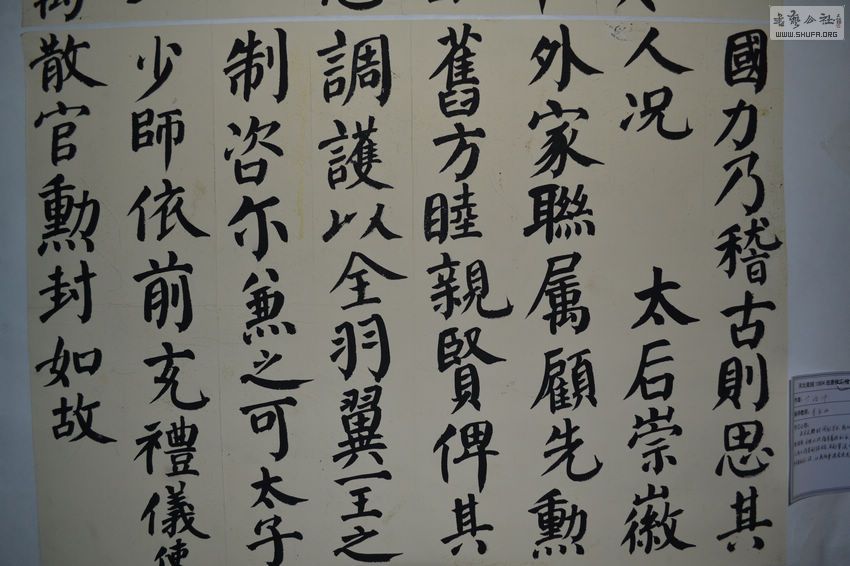 國力乃稽古則思其
人況 太后崇徽
外家聯属顧先勲
舊方睦親賢俾其
調護以全羽翼一王之
制咨尔兼之可太子
少師依前充禮儀使
散官勲封如故
書藝公社
WWW.SHUFA.ORG